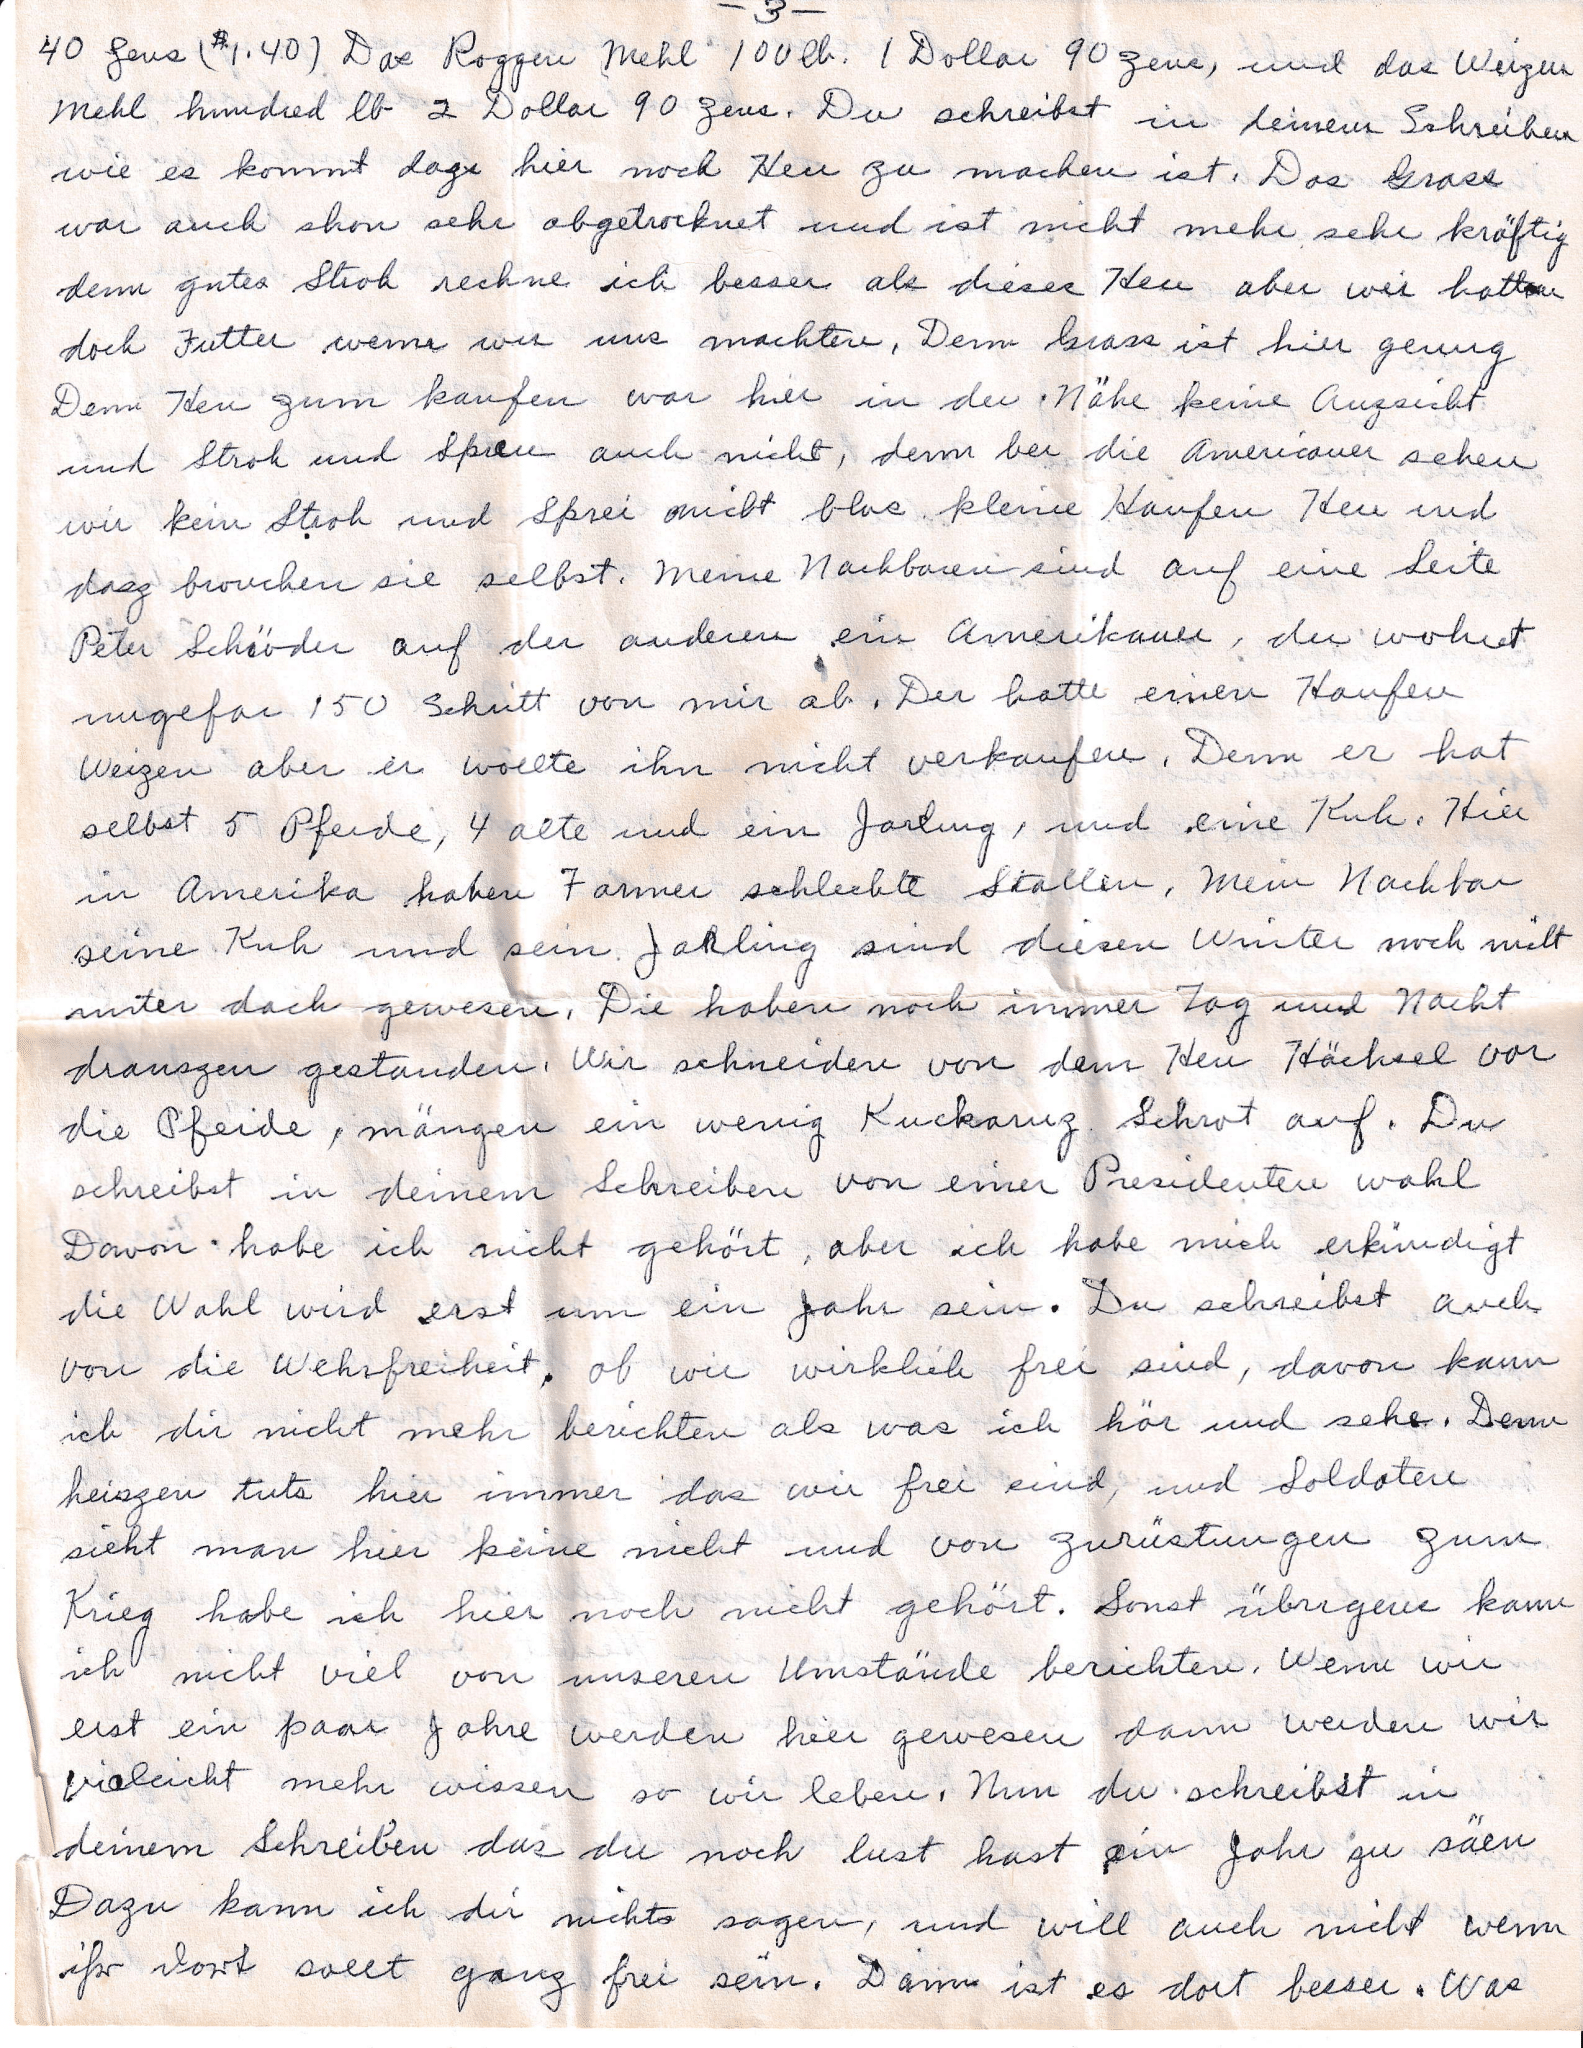 -3-
40 Zens ($1.40) Das Roggen Mehl 100 lb. 1 Dollar 90 zens, und das Weizen
Mehl hundred lb 2 Dollar 90 zens. Du schreibst in deinem Schreiben
wie es kommt dasz hier noch Heu zu machen ist. Das Grass
war auch shon sehr abgetrocknet und ist nicht mehr sehr kräftig
denn gutes Stroh rechne ich besser als dieses Heu aber wir hatten
doch Futter wenn wir uns machten, Denn Grass ist hier genug
Denn Heu zum kaufen war hier in der Nähe keine Auzsicht
und Stroh und Spreu auch nicht, denn bei die Americaner sehen
wir kein Stroh und Sprei nicht blos kleine Haufen Heu und
dasz brouchen sie selbst. Meine Nachbaren sind auf eine Seite
Peter Schöder auf der anderen ein Amerikaner, der wohnt
ungefar 150 Schritt von mir ab. Der hatte einen Haufen
Weizen aber er wollte ihn nicht verkaufen, Denn er hat
selbst 5 Pferde, 4 alte und ein Jarling, und eine Kuh. Hier
in Amerika haben Farmer schlechte Stallen, Mein Nachbar
seine Kuh und sein Jarling sind diesen Winter noch nicht
unter dach gewesen, Die haben noch immer Tag und Nacht
drauszen gestanden. Wir schneiden von dem Heu Häcksel vor
die Pferde, mängen ein wenig Kuckaruz Schrot auf. Du
schreibst in deinem Schreiben von einer Presidenten wahl
Davon habe ich nicht gehört, aber ich habe mich erkündigt
die Wahl wird erst um ein Jahr sein. Du schreibst auch
von die Wehrfreiheit, ob wir wirklich frei sind, davon kann
ich dir nicht mehr berichten als was ich hör und sehe. Denn
heiszen tuts hier immer das wir frei sind, und Soldaten
sieht man hier keine nicht und von zurüstungen zum
Krieg habe ich hier noch nicht gehört. Sonst übrigens kann
ich nicht viel von unseren Umstände berichten. Wenn wir
erst ein paar Jahre werden hier gewesen dann werden wir
vieleicht mehr wissen so wir leben. Nun du schreibst in
deinem Schreiben das du noch lust hast ein Jahr zu säen
Dazu kann ich dir nichts sagen, und will auch nicht wenn
ihr dort sollt ganz frei sein. Dann ist es dort besser. Was